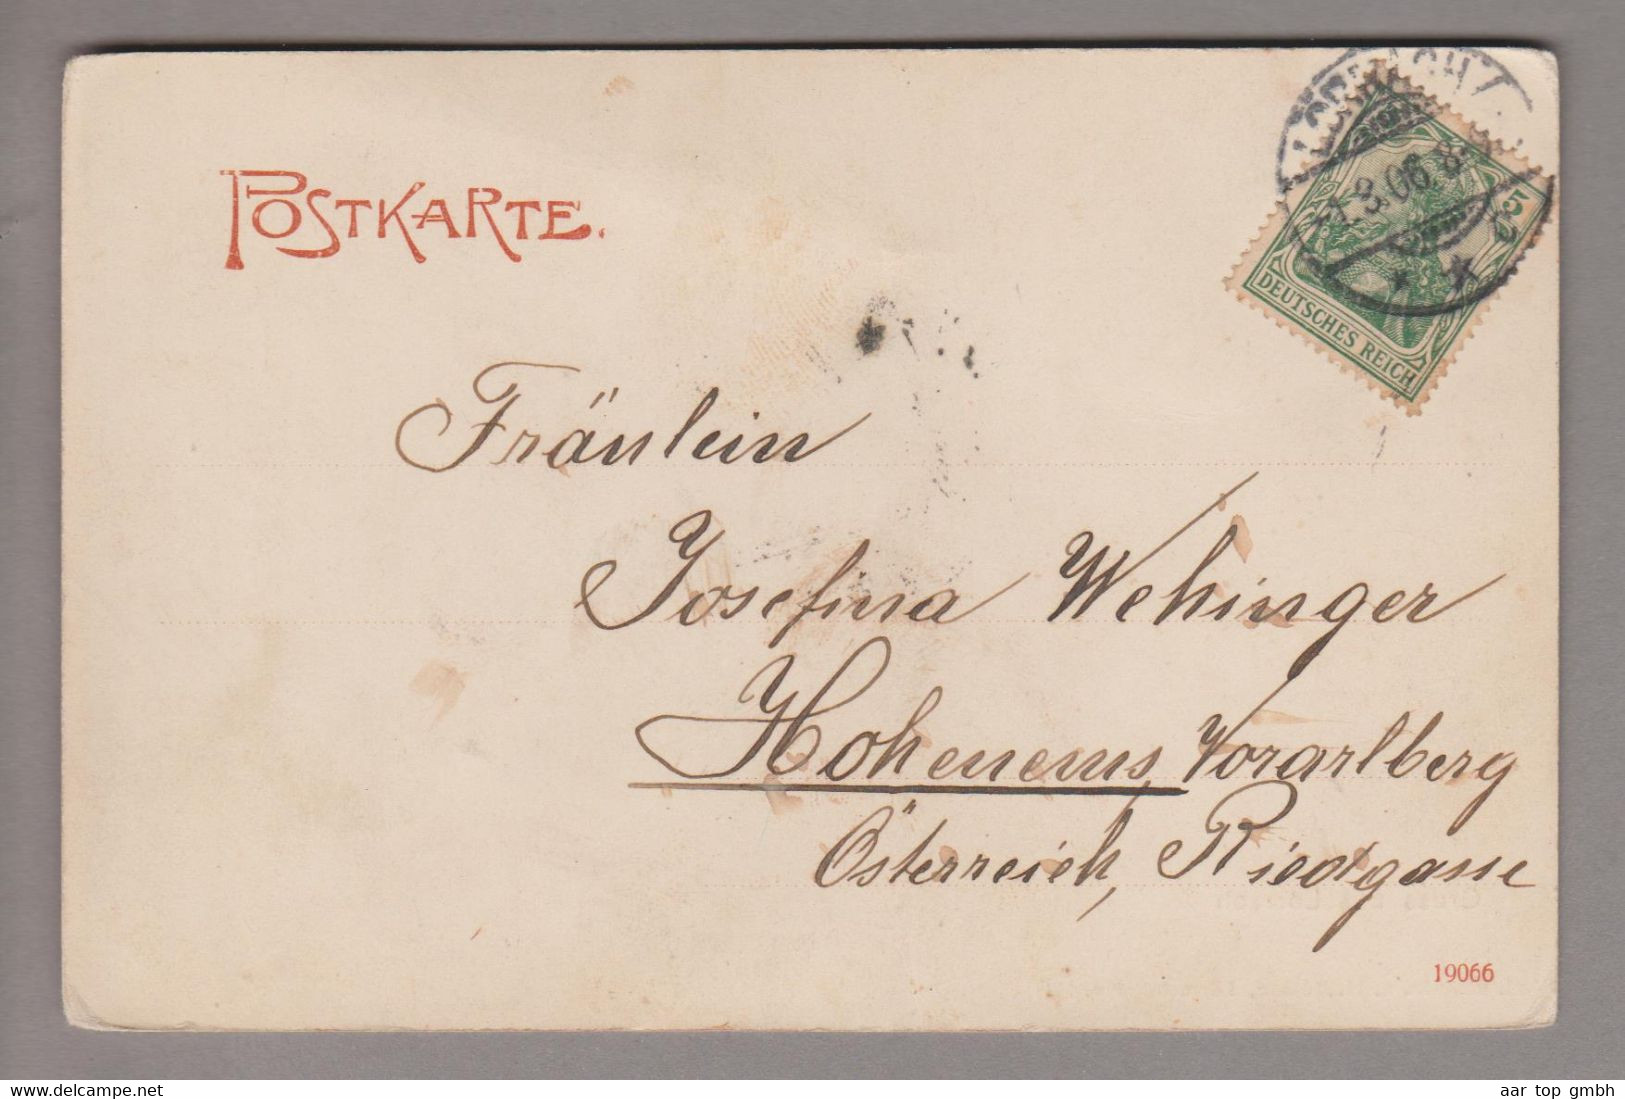 POSTKARTE.
LÖRRACH
1.3.06.8
5
5
DEUTSCHES REICH
Fräulein
Josefina Wehinger
Hohenems Vorarlberg
Österreich, Riedgasse
19066
aar top gmbh